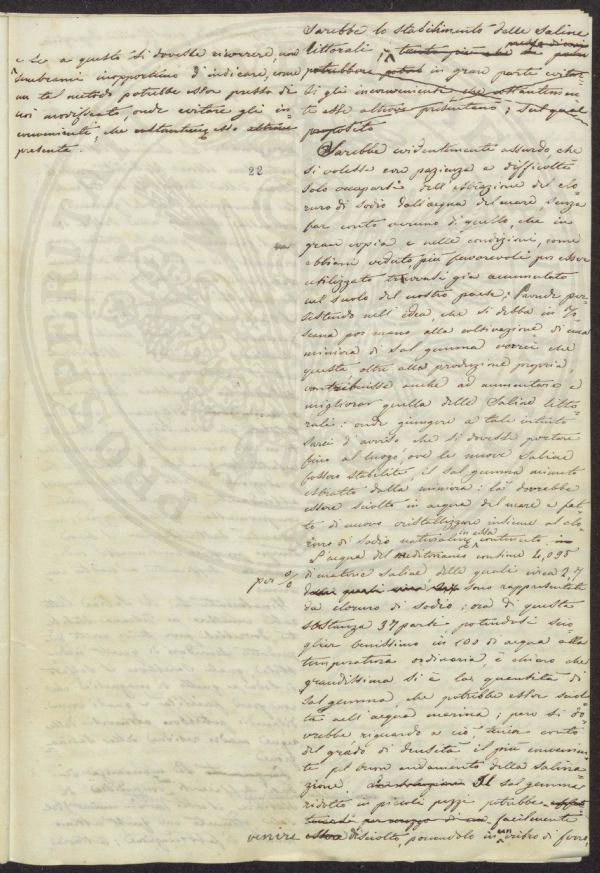 e Se a questo si dovesse ricorrere, non
sembrami inopportuno d'indicare, come
un tal metodo potrebbe esser presso di
noi modificato, onde evitare gli in=
convenienti, che esso
presenta.
22
Sarebbe lo stabilimento delle Saline
littorali
potrebbero in gran parte evitar=
si gli inconvenienti che
esse altrove presentano; sul qual
proposito
Sarebbe evidentemente assurdo che
si volesse con pazienza e difficoltà
solo occuparsi dell'estrazione del clo=
ruro di sodio dall'acqua del mare, senza
far conto veruno di quello, che in
gran copia e nelle condizioni, come
abbiam veduto, più favorevoli per esser
utilizzato trovasi già accumulato
nel suolo del nostro paese; Laonde per=
sistendo nell'idea, che si debba in To=
scana por mano alla coltivazione di una
miniera di Sal gemma vorrei che
questa oltre alla produzione propria,
contribuisse anche ad aumentare e
migliorar quella delle Saline litto=
rali: onde giungere a tale intento
sarei d'avviso che si dovesse portare
fino al luogo, ove le nuove Saline
fossero stabilite, il sal gemma
estratto dalla miniera: là dovrebbe
essere sciolto in acqua del mare e fat=
to di nuovo cristallizzare insieme al clo=
ruro di sodio naturalme in essa contenuto.
L'acqua del Mediterraneo contiene 4,095
per %
di materie saline delle quali circa 2,7
sono rappresentate
da cloruro di sodio; ora di questa
sostanza 37 parti potendosi scio=
glier benissimo in 100 di acqua alla
temperatura ordinaria, è chiaro che
grandissima si è la quantità di
Sal gemma, che potrebbe esser sciol=
ta nell'acqua marina; però si do=
vrebbe riguardo a ciò, tener conto
del grado di densità il più conveniente
pel buon andamento della salina=
zione. Il sal gemma
ridotto in piccoli pezzi potrebbe
facilmente
venire essere disciolto, ponendolo in un cribro di ferro,